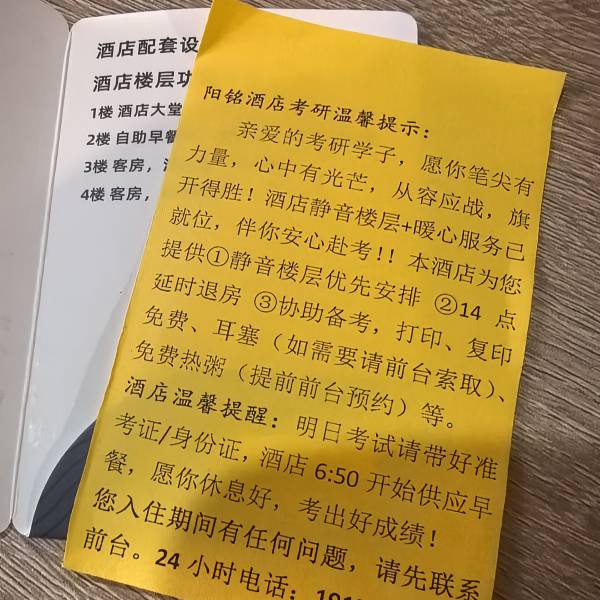 酒店配套设
酒店楼层功
1楼 酒店大堂
2楼 自助早餐
3楼 客房，
4楼 客房，
阳铭酒店考研温馨提示：
亲爱的考研学子，愿你笔尖有
力量，心中有光芒，从容应战，旗
开得胜！酒店静音楼层+暖心服务已
就位，伴你安心赴考!! 本酒店为您
提供①静音楼层优先安排 ②14 点
延时退房 ③协助备考，打印、复印
免费、耳塞（如需要请前台索取）、
免费热粥（提前前台预约）等。
酒店温馨提醒：明日考试请带好准
考证/身份证，酒店 6:50 开始供应早
餐，愿你休息好，考出好成绩！
您入住期间有任何问题，请先联系
前台。24 小时电话：